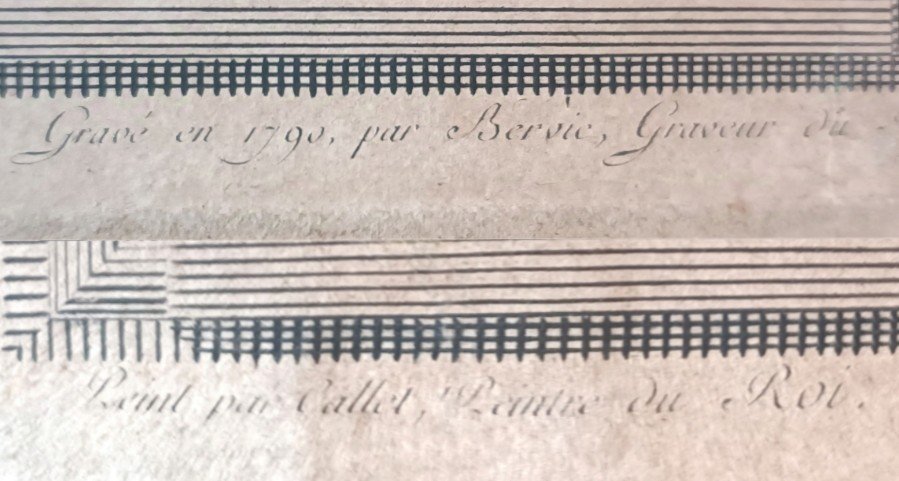 Gravé en 1790, par Bervic, Graveur du
Peint par Callet, Peintre du Roi.